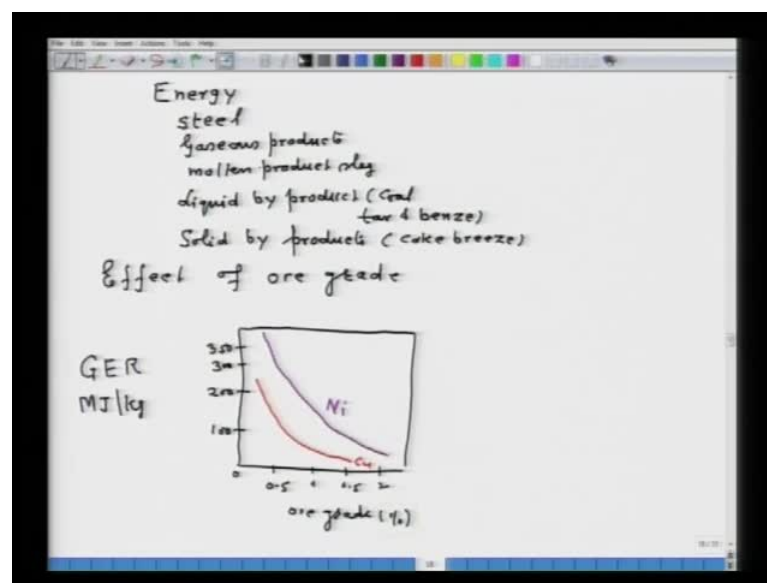 File Edit View Insert Actions Tools Help
Energy
steel
Gaseous products
molten product slag
Liquid by product (Coal
tar & benze)
Solid by products (coke breeze)
Effect of ore grade
GER
MJ/kg
350
300
200
100
Ni
Cu
0 0.5 1 1.5 2
ore grade (%)